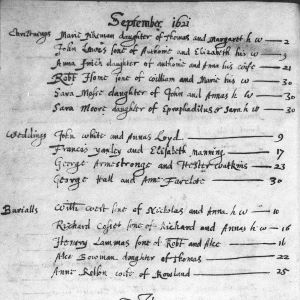 September 1621
Christnings Marie Hickman daughter of Thomas and Margaret h w — 2
John Lewes sone of Anthonie and Elizabeth his w — 9
Anna Finch daughter of Anthonie and Ana his wife — 21
Robt Home sone of William and Marie his w — 30
Sara Mosse daughter of John and Annas h w — 30
Sara Moore daughter of Epaphaditus & Sarah w — 30
Weddings John White and Annas Loyd — 9
Francis Yanley and Elisabeth Manning — 17
George Armestronge and Hester Watkins — 23
George Hall and Ann Furcloe — 30
Burialls Willi West sone of Nicholas and Anna h w — 10
Richard Cosset sone of Richard and Annas h w — 16
Henery Lammas sone of Robt and Alce — 16
Alce Bowman daughter of Thomas — 22
Anne Rolson wife of Rowland — 25